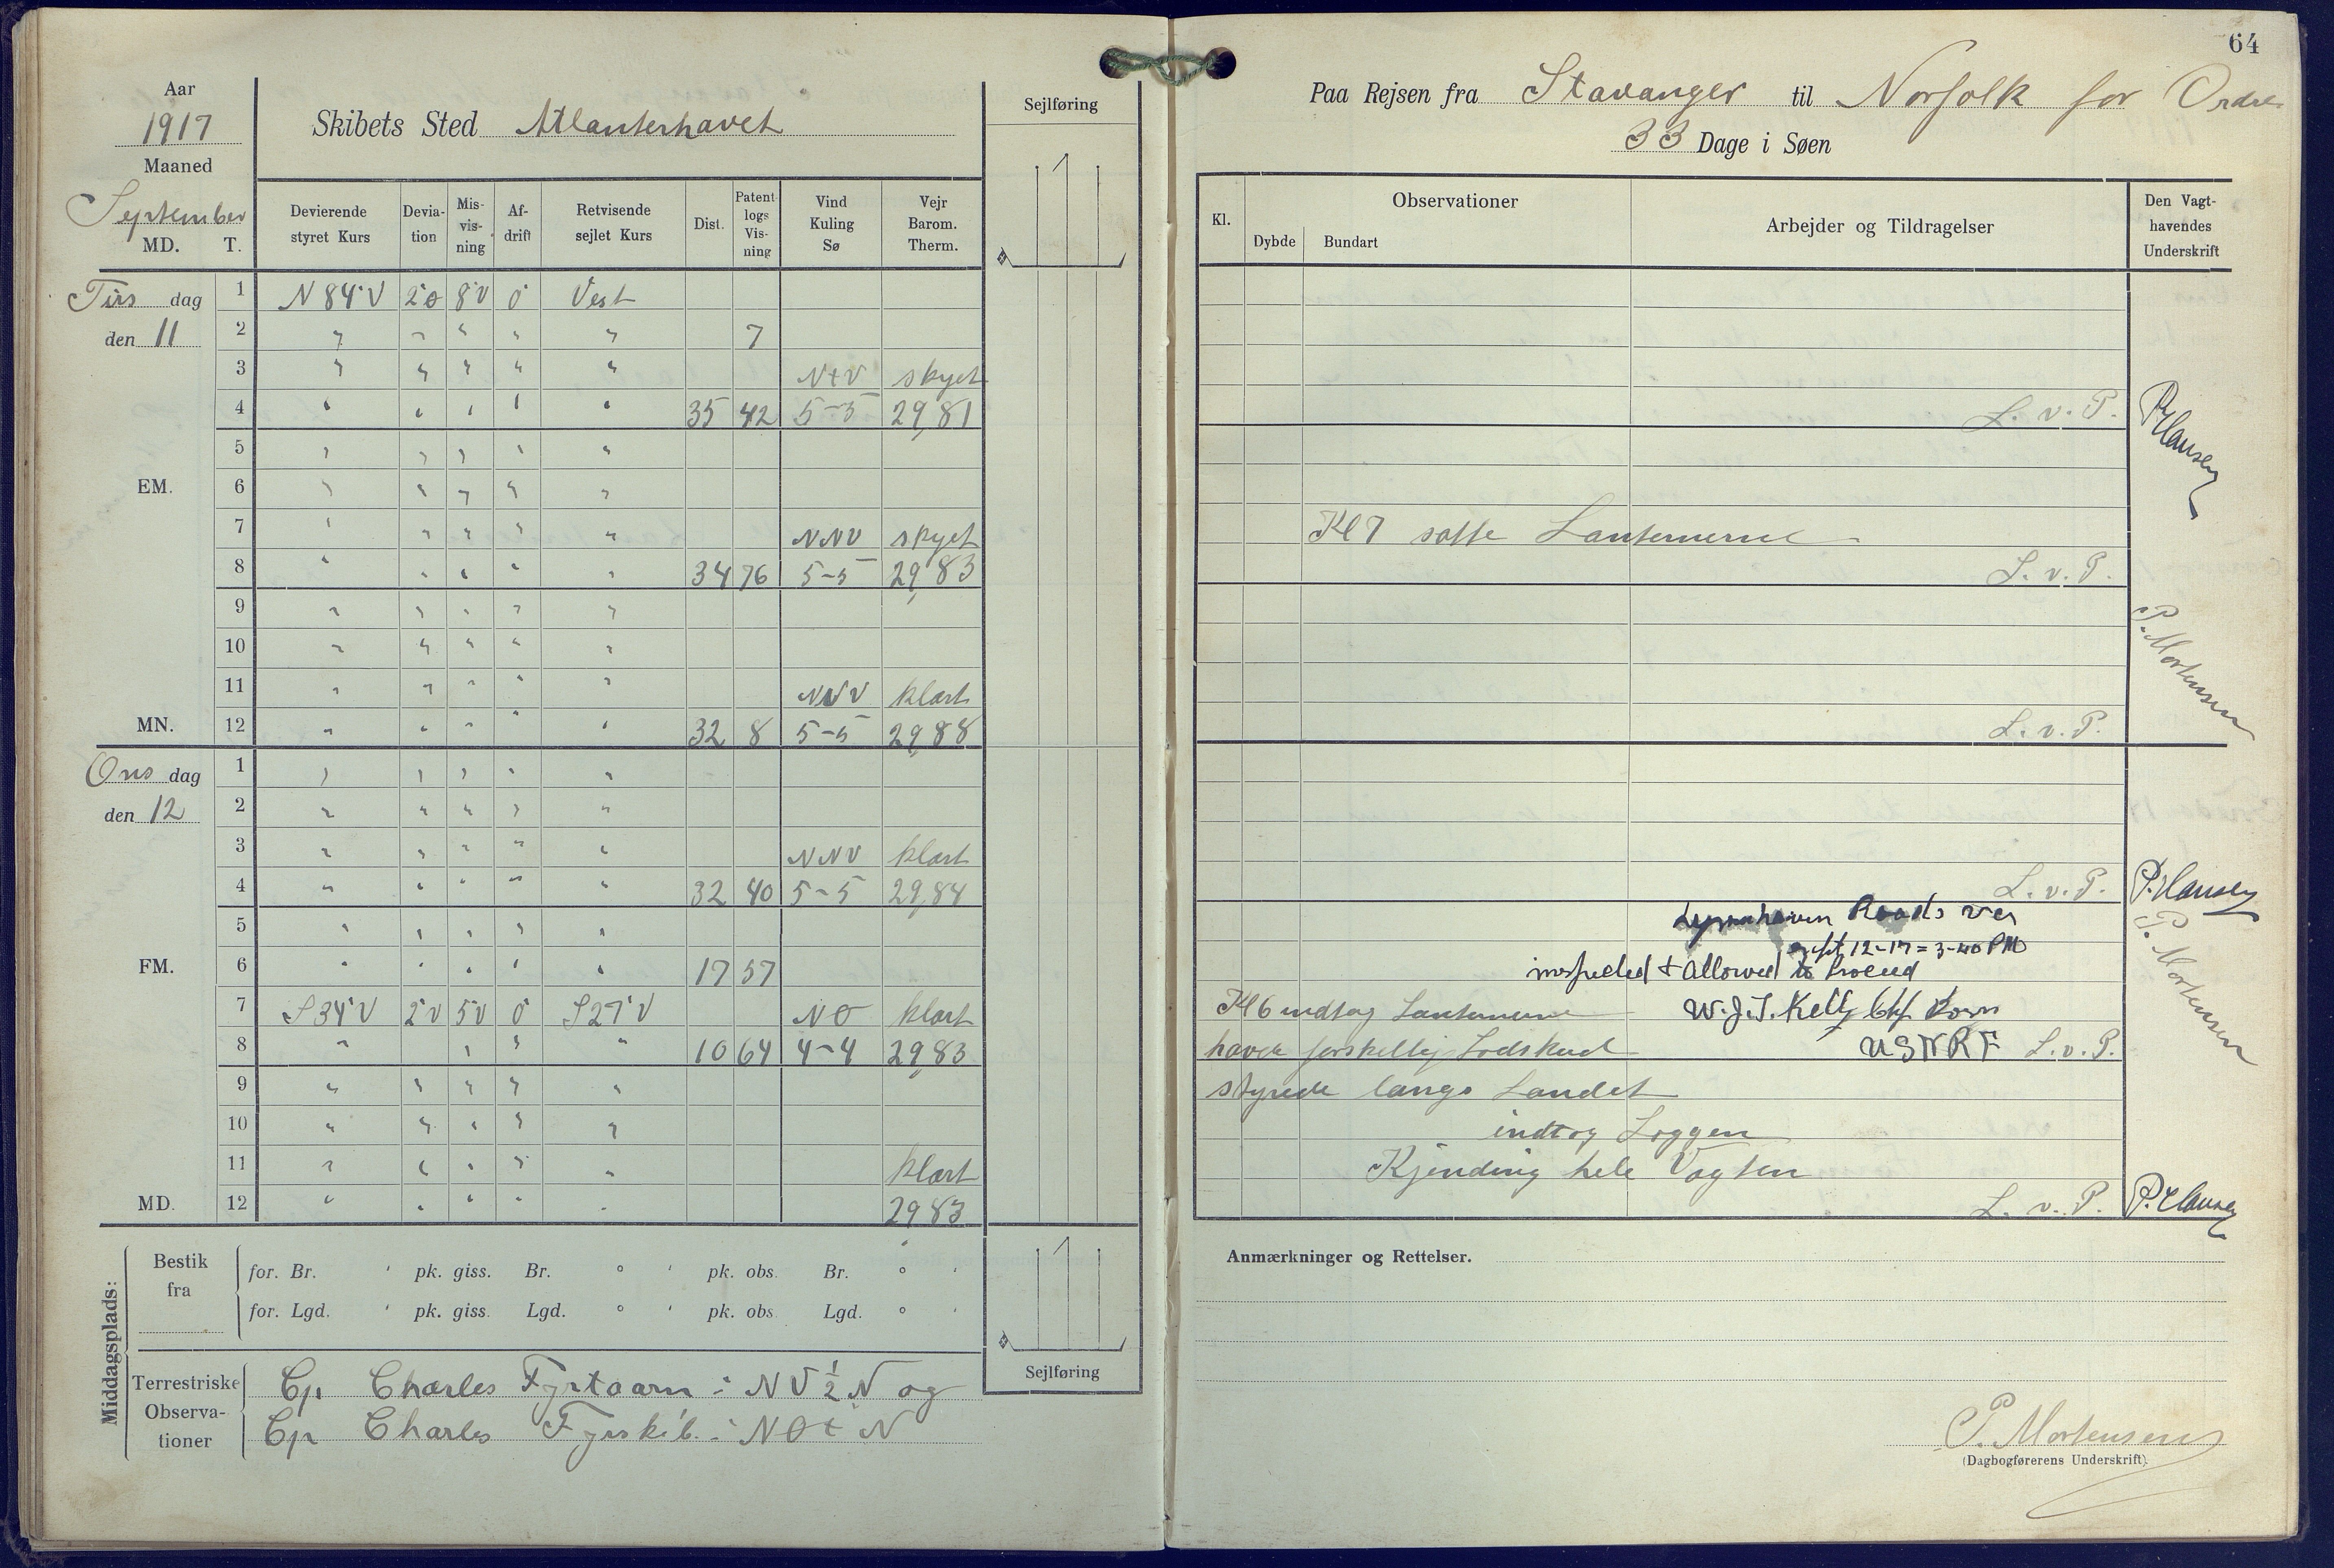 Aar
1917
Maaned
September
MD. T.
Skibets Sted Atlanterhavet
Sejlføring
Devierende styret Kurs | Deviation | Misvisning | Afdrift | Retvisende sejlet Kurs | Dist. | Patent logs Visning | Vind Kuling Sø | Vejr Barom. Therm.
Tirs dag 1 N 84° V 2° 8° V 0° Vest
den 11 2 " " " " " 7
3 " " " " " NtV skyet
4 " " " " " 35 42 5-5 29,81
5 " " " " "
EM. 6 " " " " "
7 " " " " " NNV skyet
8 " " " " " 34 76 5-5 29,83
9 " " " " "
10 " " " " "
11 " " " " " NNV klart
MN. 12 " " " " " 32 8 5-5 29,88
Ons dag 1 " " " " "
den 12 2 " " " " "
3 " " " " " NNV klart
4 " " " " " 32 40 5-5 29,84
5 " " " " "
FM. 6 " " " " " 17 57
7 S 34° V 2° V 5° V 0° S 27° V NO klart
8 " " " " 10 64 4-4 29,83
9 " " " " "
10 " " " " "
11 " " " " " klart
MD. 12 " " " " " 29,83
Middagsplads:
Bestik fra
for. Br. ' pk. giss. Br. ° ' pk. obs. Br. ° '
for. Lgd. ' pk. giss. Lgd. ° ' pk. obs. Lgd. ° '
Sejlføring
Terrestriske Observationer
Cp Charles Fyrtaarn i NV ½ N og
Cp Charles Fyrskib i NOtN
64
Paa Rejsen fra Stavanger til Norfolk for Ordre
33 Dage i Søen
Kl. | Observationer | Dybde | Bundart | Arbejder og Tildragelser | Den Vagthavendes Underskrift
L. v. P. P. Clausen
Kl 7 satte Lanternerne
L. v. P.
P. Mortensen
L. v. P.
L. v. P. P. Clausen
Lynnhaven Roads Va
Sept 12-17 = 3-40 PM
P. Mortensen
inspected + allowed to proceed
Kl 6 indtog Lanternerne W. J. T. Kelly Chf Bosn
havde forskellig Lodskud USNRF L. v. P.
styrede langs Landet
indtog Loggen
Kjending hele Vagten
L. v. P. P. Clausen
Anmærkninger og Rettelser.
P. Mortensen
(Dagbogførerens Underskrift).